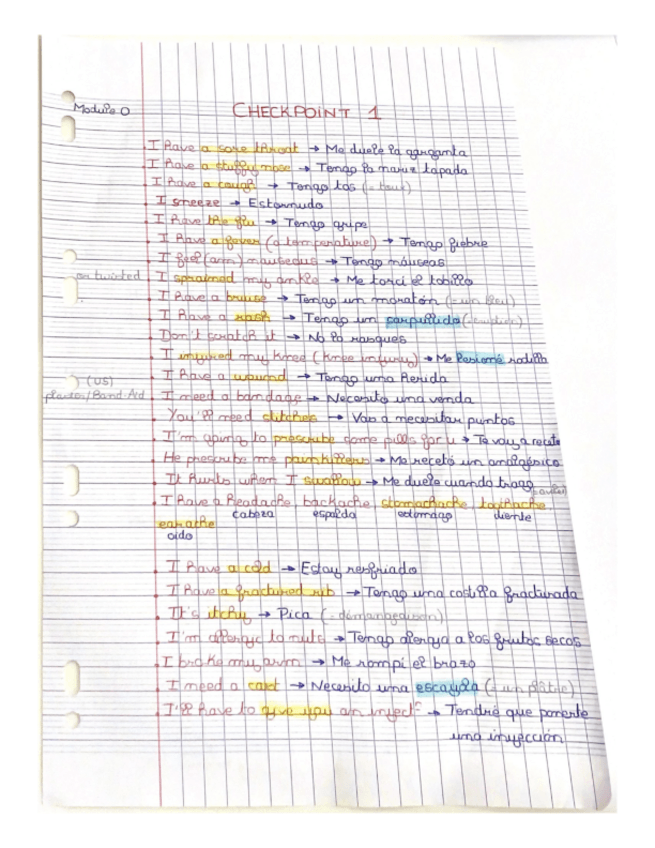 Module 0
CHECKPOINT 1
I have a sore throat → Me duele la garganta
I have a stuffy nose → Tengo la nariz tapada
I have a cough → Tengo tos (= toux)
I sneeze → Estornudo
I have the flu → Tengo gripe
I have a fever (a temperature) → Tengo fiebre
I feel (am) nauseous → Tengo náuseas
or twisted I sprained my ankle → Me torcí el tobillo
I have a bruise → Tengo un moratón (= un bleu)
I have a rash → Tengo un sarpullido
Don't scratch it → No lo rasques
I injured my knee (knee injury) → Me lesioné rodilla
I have a wound → Tengo una herida
(US)
plaster/Band-Aid I need a bandage → Necesito una venda
You'll need stitches → Vas a necesitar puntos
I'm going to prescribe some pills for u → Te voy a
He prescribe me painkillers → Me recetó un analgésico
It hurts when I swallow → Me duele cuando trago
I have a headache backache stomachache toothache
cabeza espalda estómago diente
earache
oído
I have a cold → Estoy resfriado
I have a fractured rib → Tengo una costilla fracturada
It's itchy → Pica (= démangeaison)
I'm allergic to nuts → Tengo alergia a los frutos secos
I broke my arm → Me rompí el brazo
I need a cast → Necesito una escayola (= un plâtre)
I'll have to give you an inject° → Tendré que ponerte
una inyección